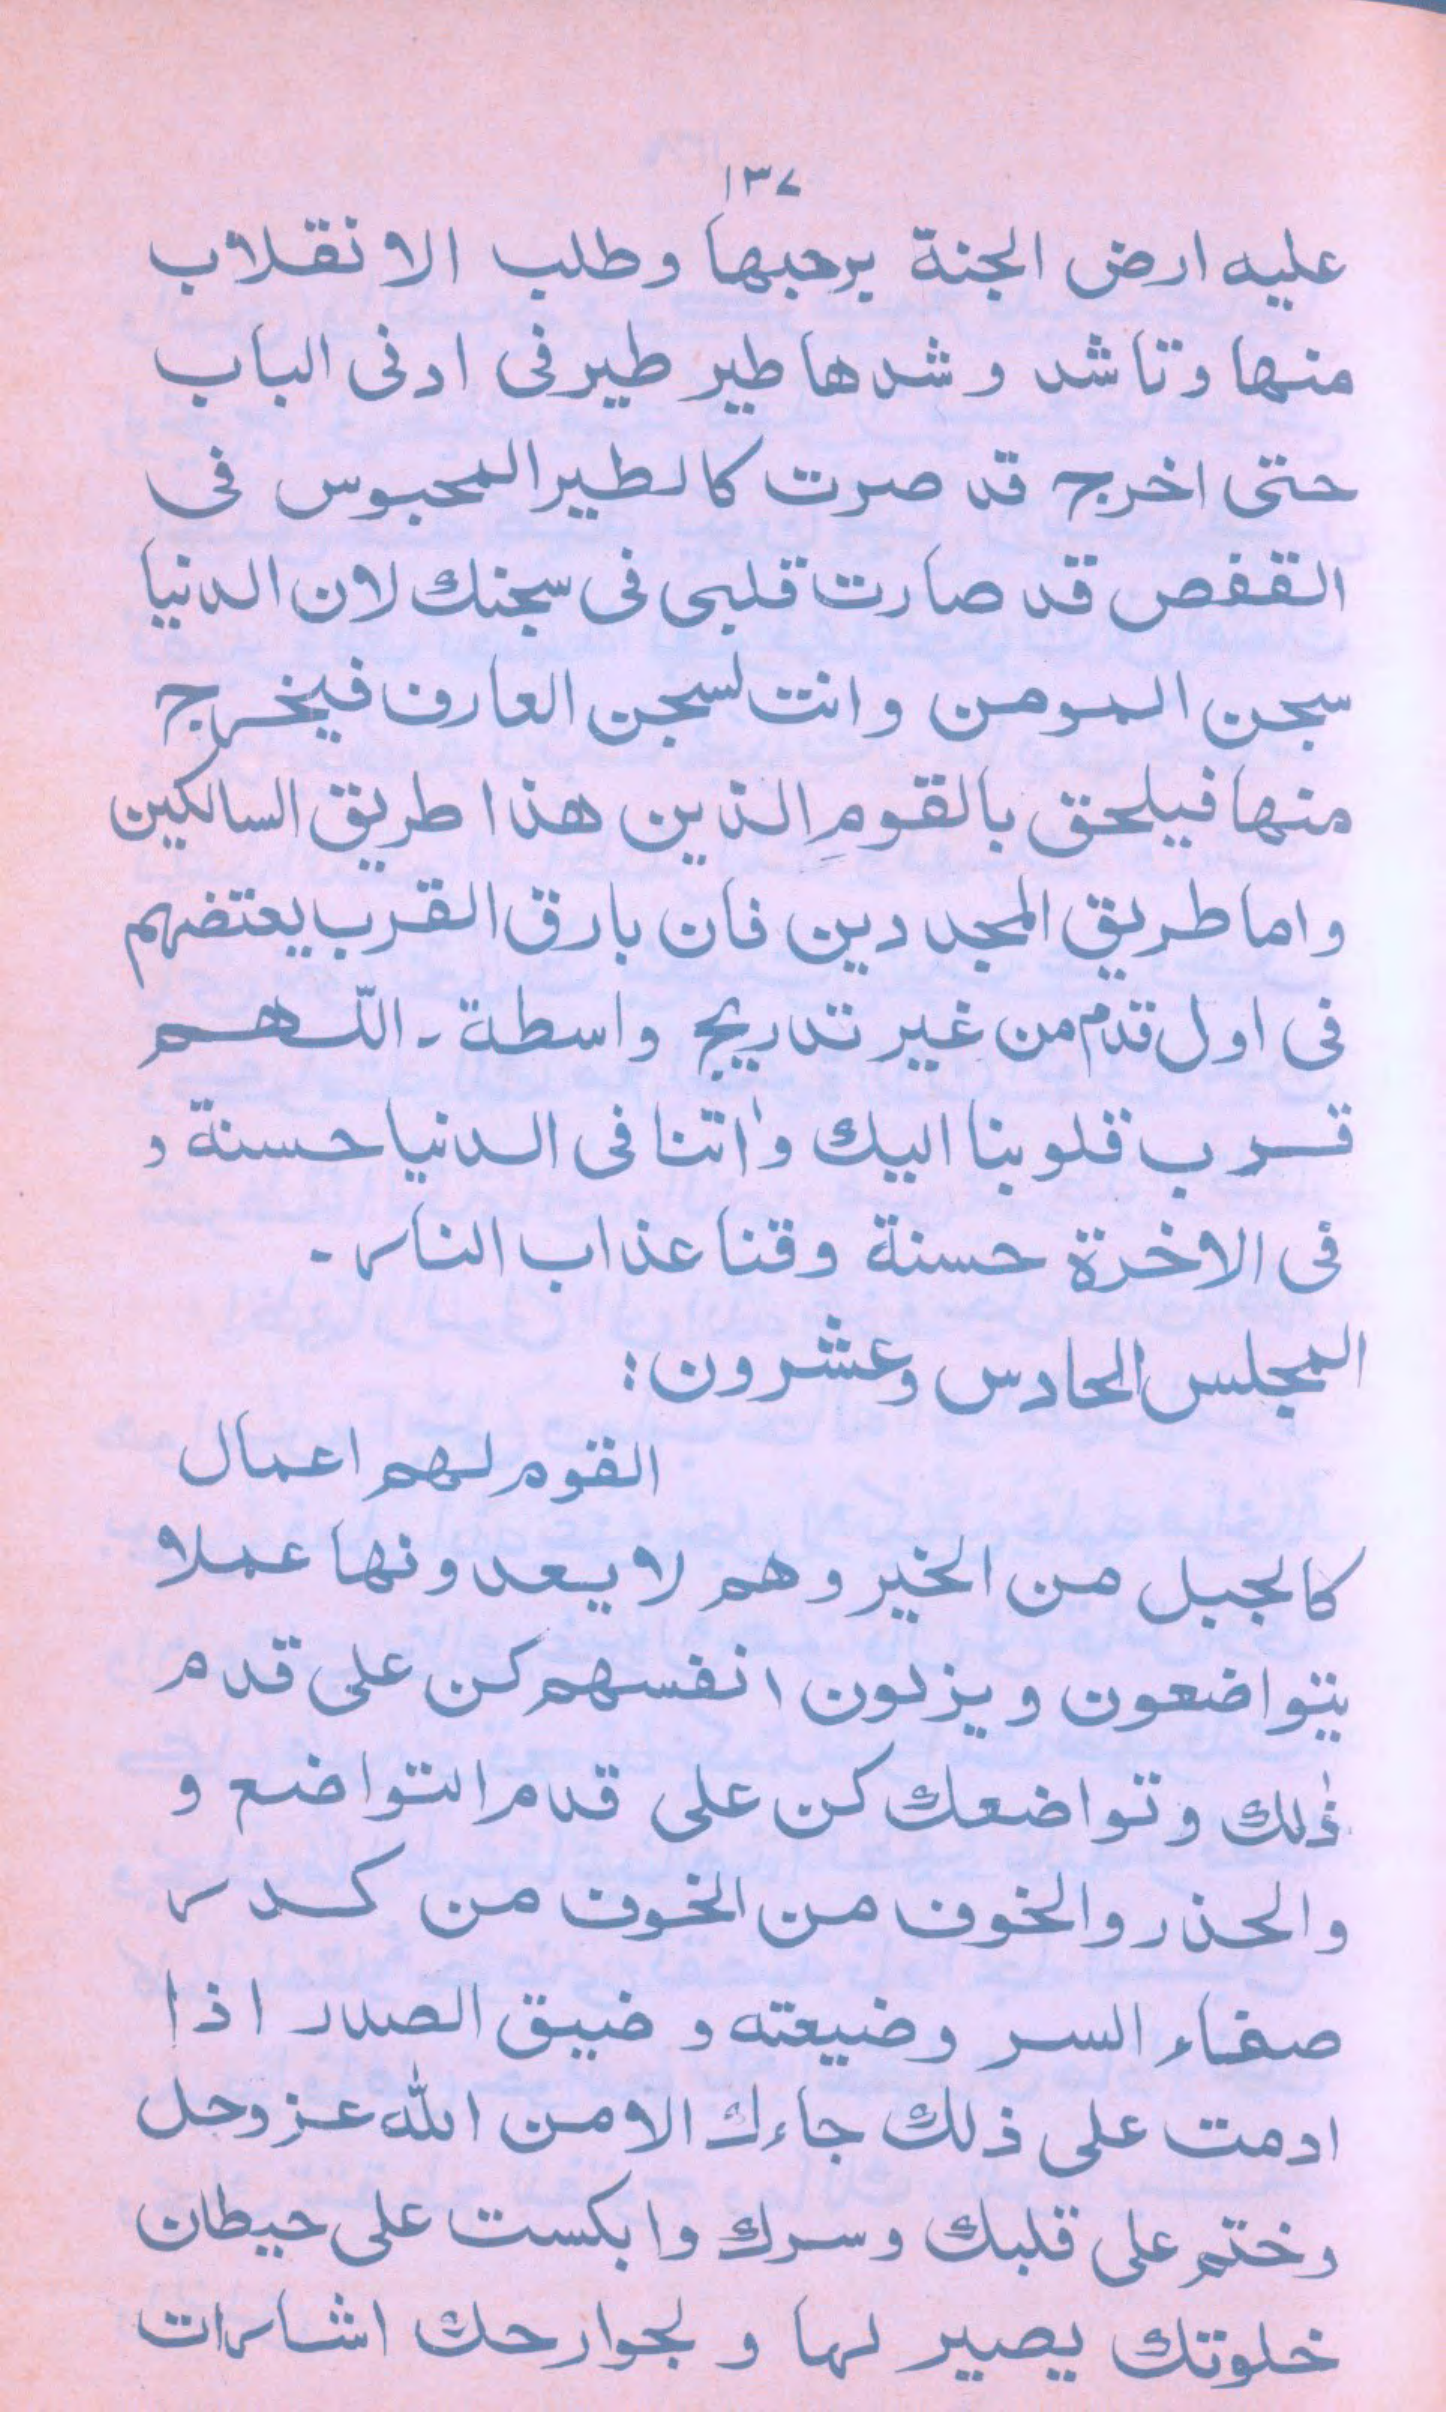 ١٣٧
عليه ارض الجنة برحبها وطلب الانقلاب
منها وتاشد وشدها طير طير فى ادنى الباب
حتى اخرج قد صرت كالطير المحبوس فى
القفص قد صارت قلبى فى سجنك لان الدنيا
سجن المومن وانت لسجن العارف فيخرج
منها فيلحق بالقومِ الذين هذا طريق السالكين
واما طريق المجددين فان بارق القرب يعتضهم
فى اول قدم من غير تدريج واسطة ۔ اللّهم
قرب قلوبنا اليك واٰتنا فى الدنيا حسنة و
فى الاخرة حسنة وقنا عذاب النار ۔
المجلس الحادس وعشرون :
القوم لهم اعمال
كالجبل من الخير وهم لا يعدونها عملا
يتواضعون ويزلون انفسهم كن على قدم
ذٰلك وتواضعك كن على قدم التواضع و
والحذر والخوف من الخوف من كدر
صفاء السر وضيعته وضيق الصدر اذا
ادمت على ذلك جاءك الامن الله عزوحل
وختم على قلبك وسرك وابكست على حيطان
خلوتك يصير لها ولجوارحك اشارات